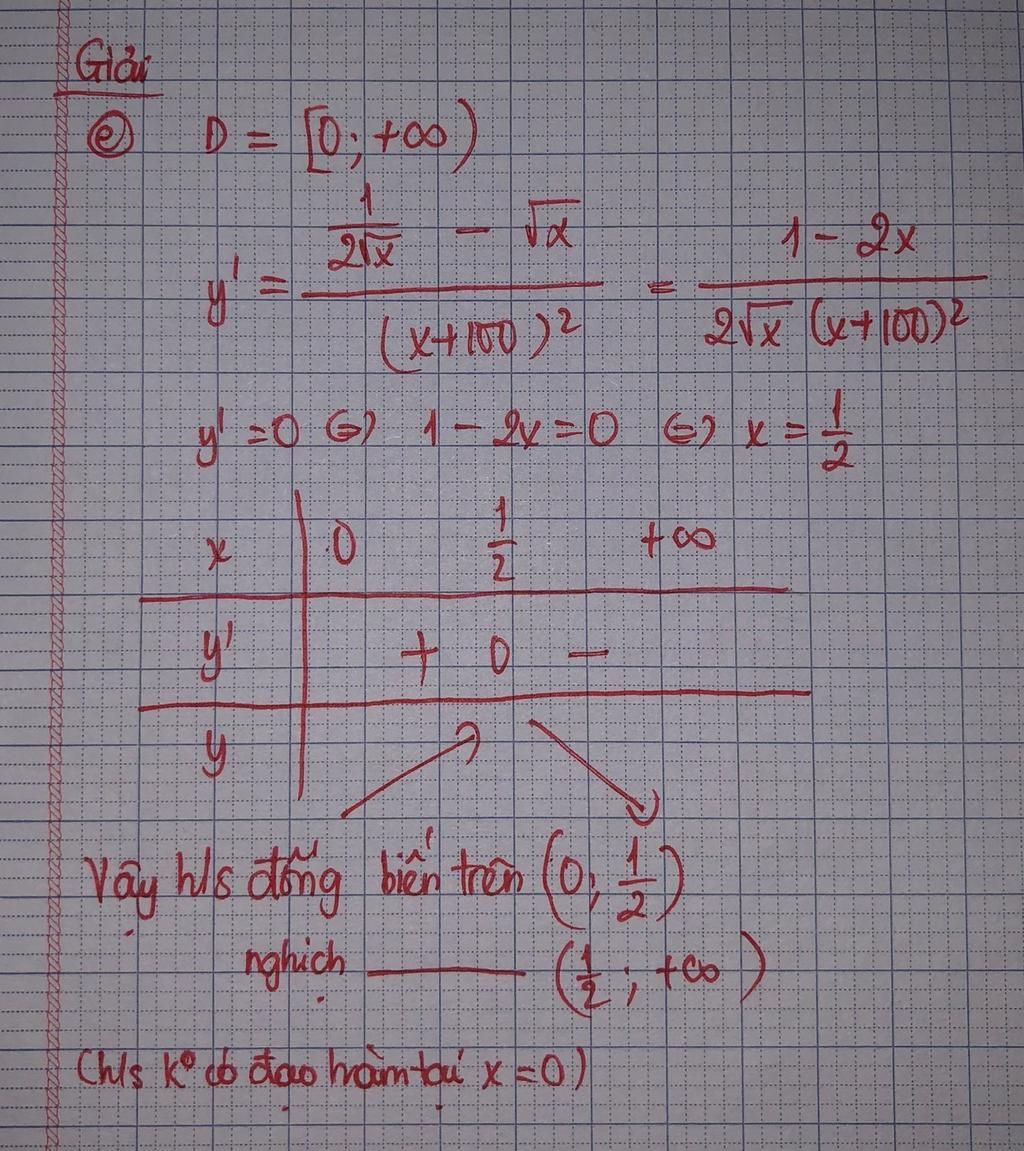 Giải
ⓔ D = [0; +∞)
y' = (1/(2√x) - √x)/(x+100)² = (1 - 2x)/(2√x (x+100)²)
y' = 0 ⇔ 1 - 2x = 0 ⇔ x = 1/2
x 0 1/2 +∞
y' + 0 -
y
Vậy h/s đồng biến trên (0; 1/2)
nghịch ——— (1/2; +∞)
(h/s k° có đạo hàm tại x = 0)